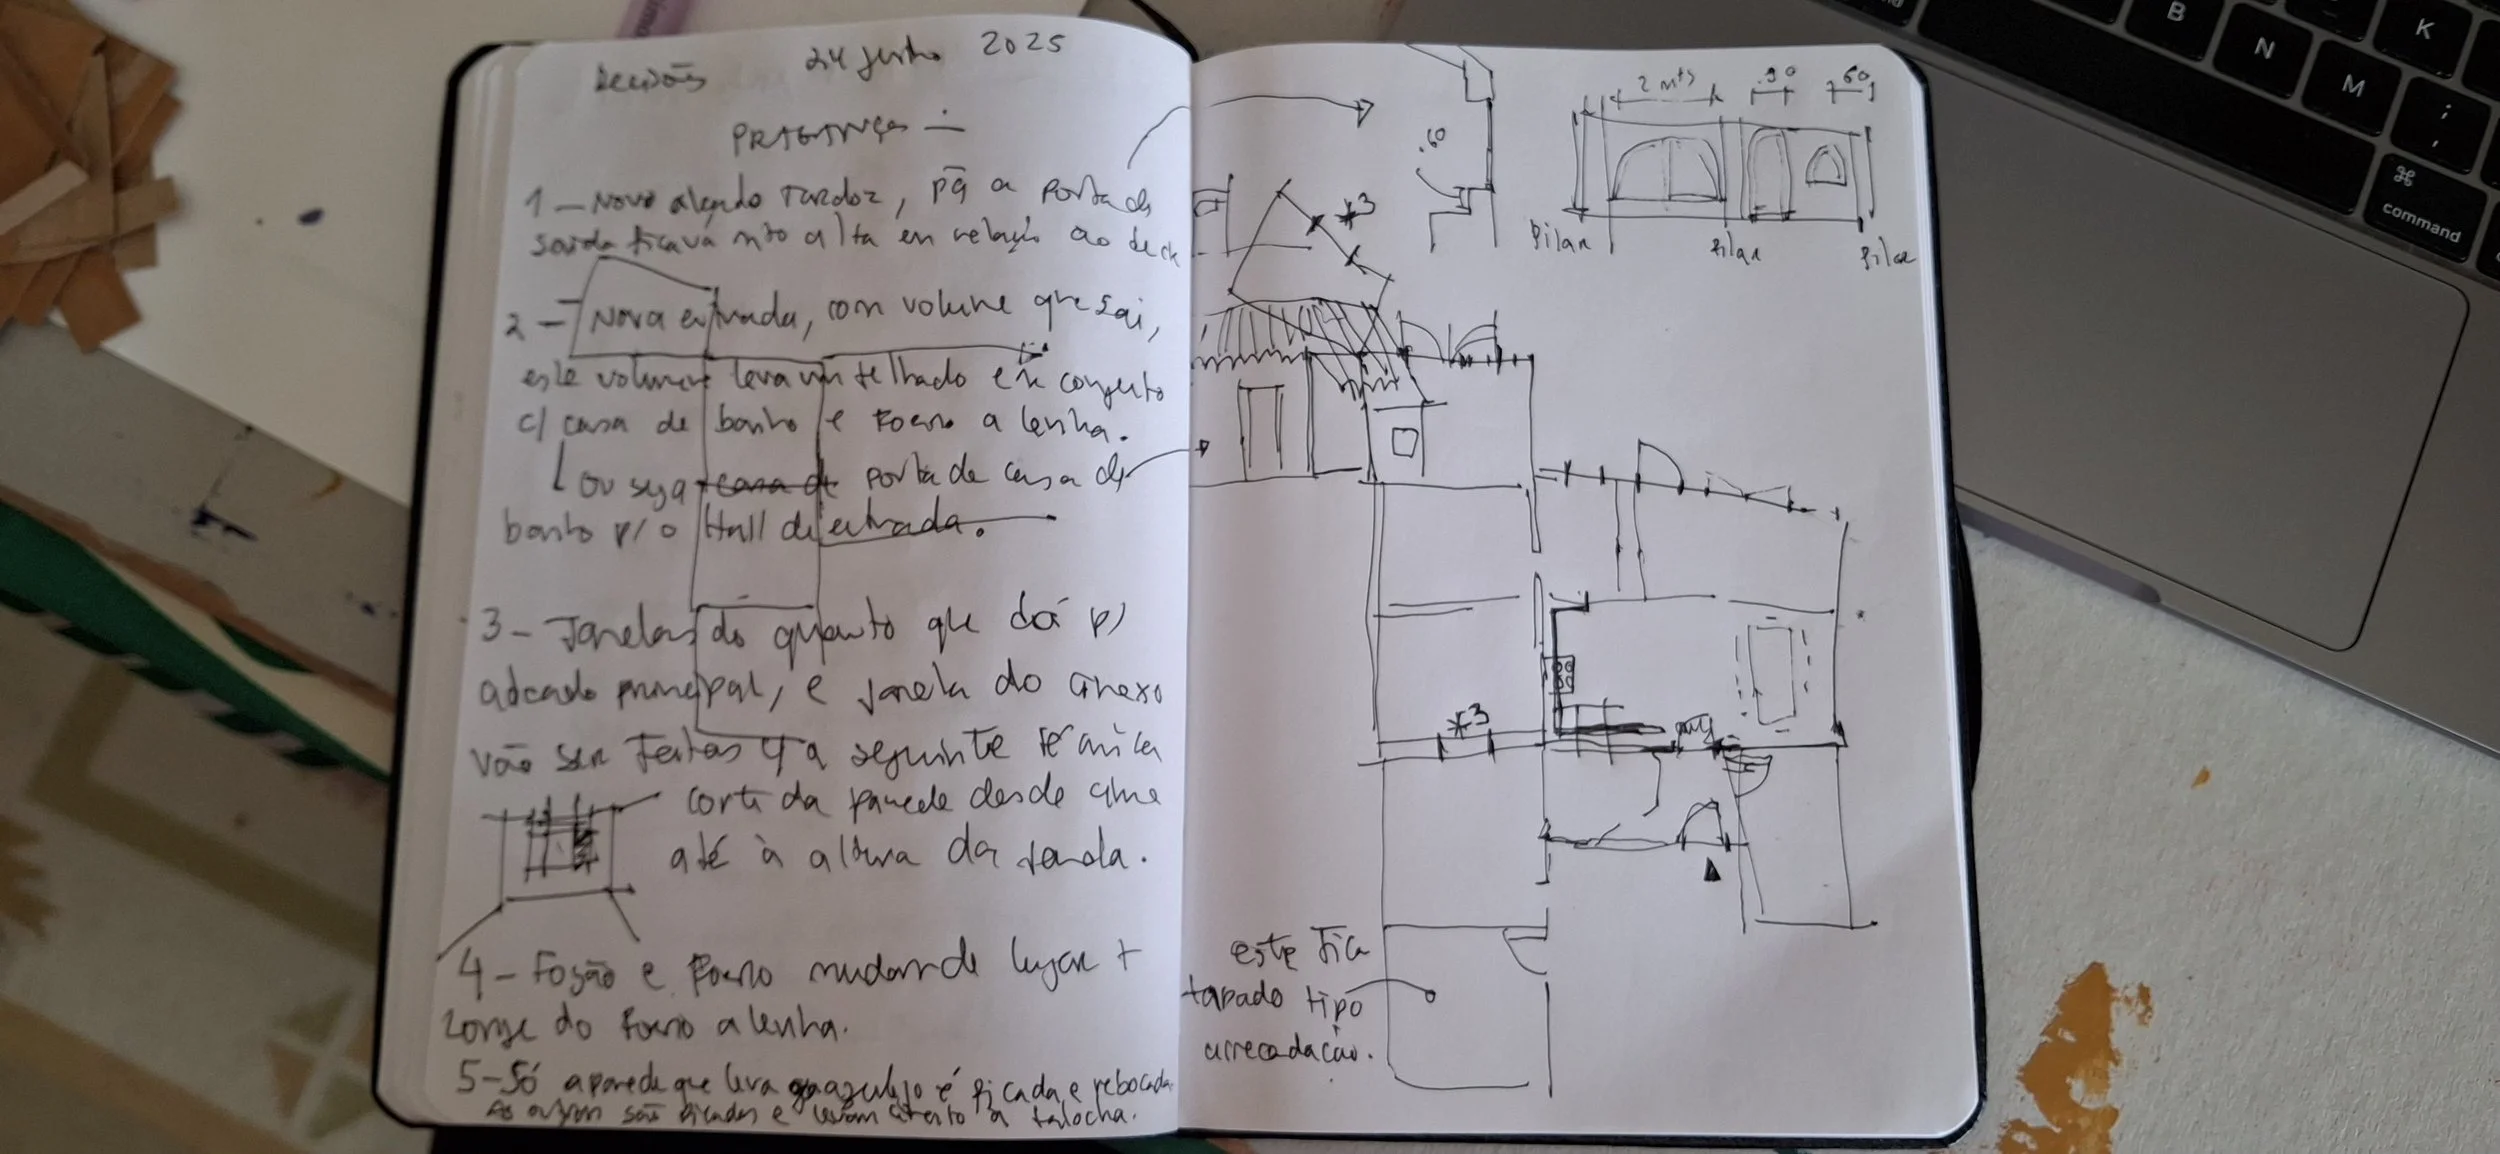 Decisões 24 Junho 2025
PRAGANÇA —
1 — Novo alçado tardoz, pq a porta de
saída ficava mto alta em relação ao deck
2 — Nova entrada, com volume que sai,
este volume leva um telhado em conjunto
c/ casa de banho e Forno a lenha.
ou seja casa de porta de casa de
banho p/ o Hall de entrada.
3 — Janelas do quarto que dá p/
alçado principal, e janela do anexo
vão ser feitas c/ a seguinte técnica
corte da parede desde cima
até à altura da janela.
4 — Fogão e Forno mudam de lugar +
longe do forno a lenha.
5 — Só a parede que leva azulejo é picada e rebocada
As outras são picadas e levam a talocha.
2 mts .90 .60
.60
*3
Pilar Pilar Pilar
*3
este fica
tapado tipo
arrecadação.
B
N
M
K
;
,
⌘
command